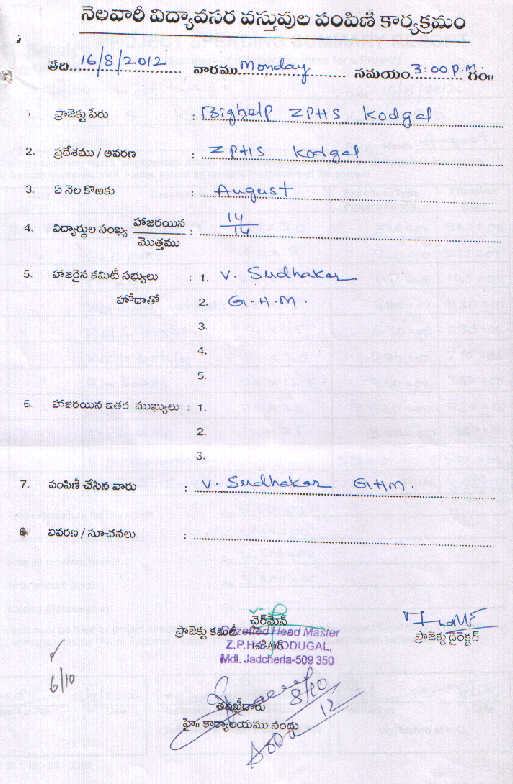 నెలవారీ విద్యావసర వస్తువుల పంపిణీ కార్యక్రమం
తేది 16/8/2012 వారము Monday సమయం 3:00 P.M గం॥
1. ప్రాజెక్టు పేరు : Bighelp ZPHS Kodgal
2. ప్రదేశము / ఆవరణ : ZPHS Kodgal
3. ఏ నెల కొఱకు : August
4. విద్యార్థుల సంఖ్య హాజరయిన / మొత్తము : 14/14
5. హాజరైన కమిటీ సభ్యులు : 1. V. Sudhakar
హోదాతో 2. G.H.M.
3.
4.
5.
6. హాజరయిన ఇతర ముఖ్యులు : 1.
2.
3.
7. పంపిణీ చేసిన వారు : V. Sudhakar GHM.
8. వివరణ / సూచనలు :
చైర్‌మేన్
ప్రాజెక్టు కమిటీ Gazetted Head Master
Z.P.H.S. KODUGAL,
Mdl. Jadcherla-509 350
ప్రాజెక్టు డైరెక్టర్
6/10
8/10
12
హై॥ కార్యాలయము నందు